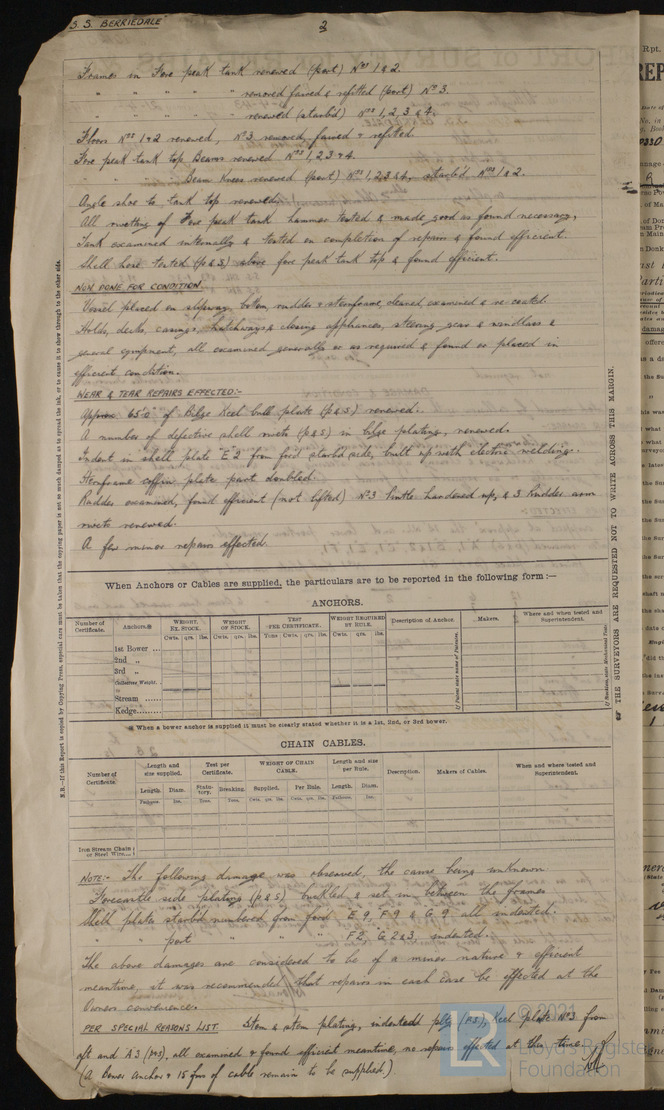 S.S. BERRIEDALE
2
Frames in Fore peak tank renewed (port) Nos 1 & 2.
" " " " " removed faired & refitted (port) No 3.
" " " " " renewed (starbd) Nos 1, 2, 3 & 4.
Floors Nos 1 & 2 renewed, No 3 removed, faired & refitted.
Fore peak tank top Beams renewed Nos 1, 2, 3 & 4.
" " " " Beam Knees renewed (port) Nos 1, 2, 3 & 4, starbd Nos 1 & 2.
Angle shoe to tank top renewed.
All rivetting of Fore peak tank hammer tested & made good as found necessary,
Tank examined internally & tested on completion of repairs & found efficient.
Shell hose tested (p & s) above fore peak tank top & found efficient.
NOW DONE FOR CONDITION.
Vessel placed on slipway bottom, rudder & sternframe cleaned examined & re-coated.
Holds, decks, casings, hatchways & closing appliances, steering gear & windlass &
general equipment, all examined generally or as required & found or placed in
efficient condition.
WEAR & TEAR REPAIRS EFFECTED:-
Approx 65'0" of Bilge Keel bulb plate (p & s) renewed.
A number of defective shell rivets (p & s) in bilge plating, renewed.
Indent in shell plate E2 from ford starbd side, built up with electric welding.
Sternframe coffin plate part doubled.
Rudder examined, found efficient (not lifted) No 3 Pintle hardened up, & 3 Rudder arm
rivets renewed.
A few minor repairs effected.
When Anchors or Cables are supplied, the particulars are to be reported in the following form :—
ANCHORS.
Number of Certificate. Anchors.✻ WEIGHT, EX. STOCK. WEIGHT OF STOCK. TEST PER CERTIFICATE. WEIGHT REQUIRED BY RULE. Description of Anchor. If Patent state name of Patentee. Makers. Where and when tested and Superintendent.
Cwts. qrs. lbs. Cwts. qrs. lbs. Tons Cwts. qrs. lbs. Cwts. qrs. lbs.
1st Bower ...
2nd „
3rd „
Collective Weight.
Stream ......
Kedge.........
✻ When a bower anchor is supplied it must be clearly stated whether it is a 1st, 2nd, or 3rd bower.
CHAIN CABLES.
Number of Certificate. Length and size supplied. Test per Certificate. WEIGHT OF CHAIN CABLE. Length and size per Rule. Description. Makers of Cables. When and where tested and Superintendent.
Length. Diam. Statutory. Breaking. Supplied. Per Rule. Length. Diam.
Fathoms. Ins. Tons. Tons. Cwts. qrs. lbs. Cwts. qrs. lbs. Fathoms. Ins.
Iron Stream Chain or Steel Wire...
NOTE:- The following damage was observed, the cause being unknown
Forecastle side plating (p & s) buckled & set in between the frames
Shell plate starbd numbered from ford E 9, F 9 & G 9, all indented.
" " port " " " F 2, G 2 & 3, indented.
The above damages are considered to be of a minor nature & efficient
meantime, it was recommended that repairs in each case be effected at the
Owners convenience.
PER SPECIAL REASONS LIST. Stem & stem plating, indented pltg (A3), Keel plate No 3 from
aft and A3 (p&s), all examined & found efficient meantime, no repairs effected at this time.
(A Bower Anchor & 15 fms of cable remain to be supplied.)
N.B.—If this Report is copied by Copying Press, especial care must be taken that the copying paper is not so much damped as to spread the ink, or to cause it to show through to the other side.
THE SURVEYORS ARE REQUESTED NOT TO WRITE ACROSS THIS MARGIN.
Rpt.
REP
© 2021
LR
Lloyd's Register
Foundation